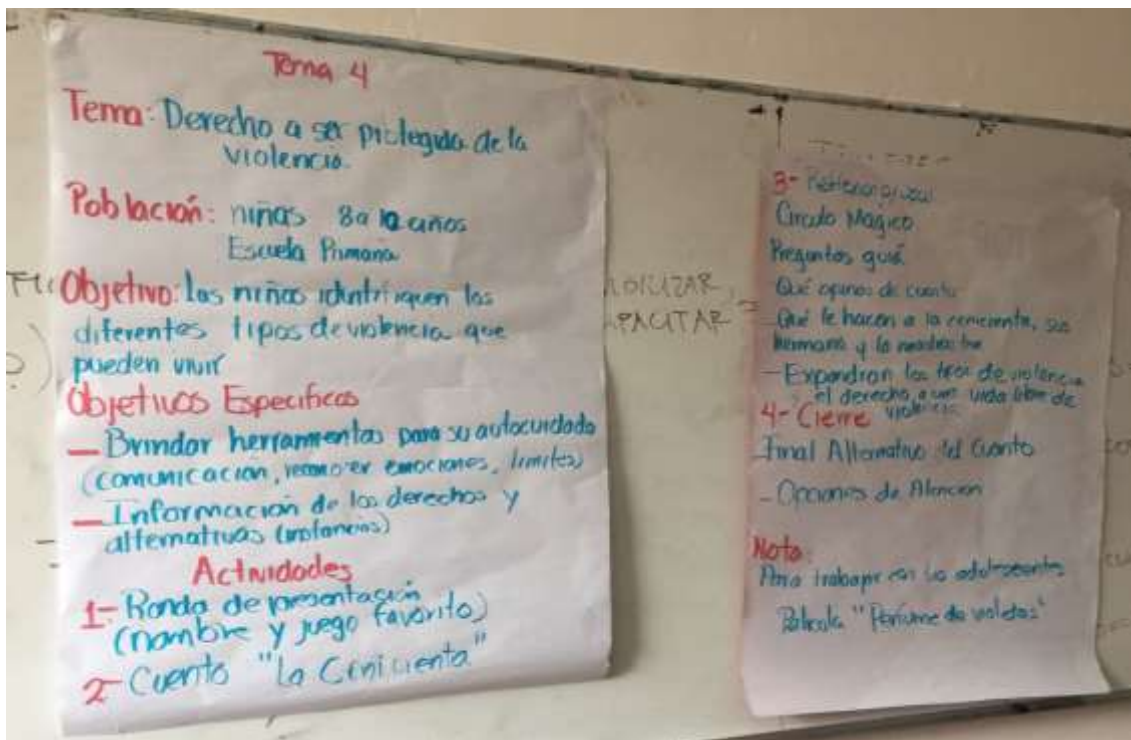 Tema 4
Tema: Derecho a ser protegida de la
violencia.
Población: niñas 8 a 12 años
Escuela Primaria
Objetivo: Las niñas identifiquen los
diferentes tipos de violencia que
pueden vivir
Objetivos Específicos
— Brindar herramientas para su autocuidado
(comunicación, reconocer emociones, límites)
— Información de los derechos y
alternativas (instancias)
Actividades
1- Ronda de presentación
(nombre y juego favorito)
2- Cuento "La Cenicienta"
3-
Circulo Magico
Preguntas guía
Qué opinas de cuento
- Qué le hacen a la cenicienta, sus
hermana y la madrastra
- Expondran los tipos de violencia
el derecho a una vida libre de
violencia
4- Cierre
- Final Alternativo del Cuento
- Opciones de Atencion
Nota:
Para trabajar con las adolescentes
Pelicula "Perfume de violetas"
PACITAR